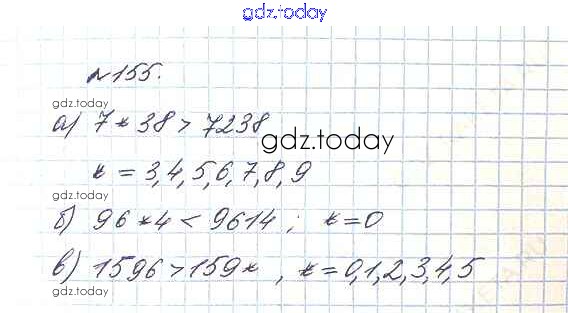 gdz.today
№155.
gdz.today
а) 7 * 38 > 7238
gdz.today
* = 3,4,5,6,7,8,9
gdz.today
б) 96*4 < 9614 ; *=0
gdz.today
в) 1596>159* , *=0,1,2,3,4,5
gdz.today